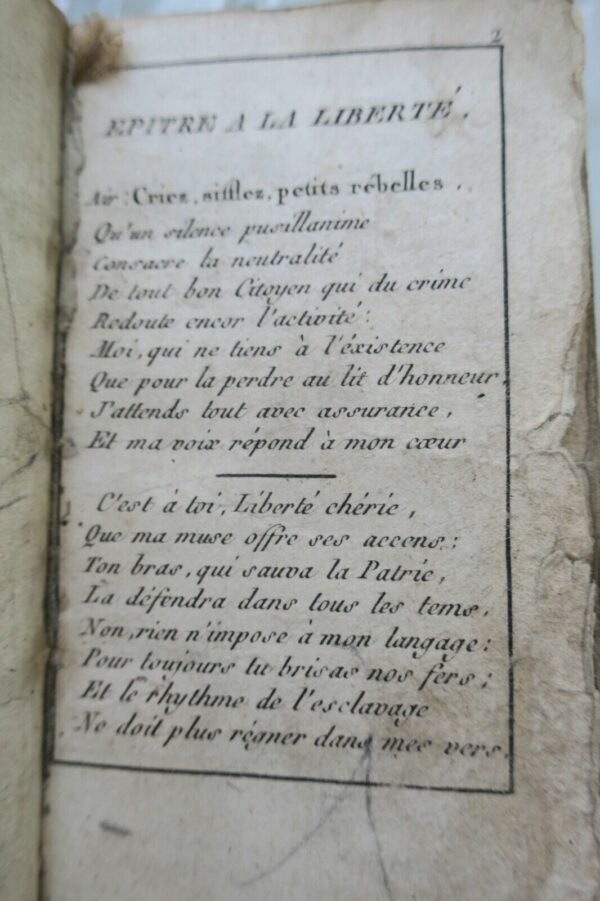 2
EPITRE A LA LIBERTÉ.
Air: Criez, sifflez, petits rébelles.
Qu'un silence pusillanime
Consacre la neutralité
De tout bon Citoyen qui du crime
Redoute encor l'activité:
Moi, qui ne tiens à l'éxistence
Que pour la perdre au lit d'honneur,
J'attends tout avec assurance,
Et ma voix répond à mon cœur
C'est à toi, Liberté chérie,
Que ma muse offre ses accens;
Ton bras, qui sauva la Patrie,
La défendra dans tous les tems.
Non, rien n'impose à mon langage:
Pour toujours tu brisas nos fers;
Et le rhythme de l'esclavage
Ne doit plus régner dans mes vers.